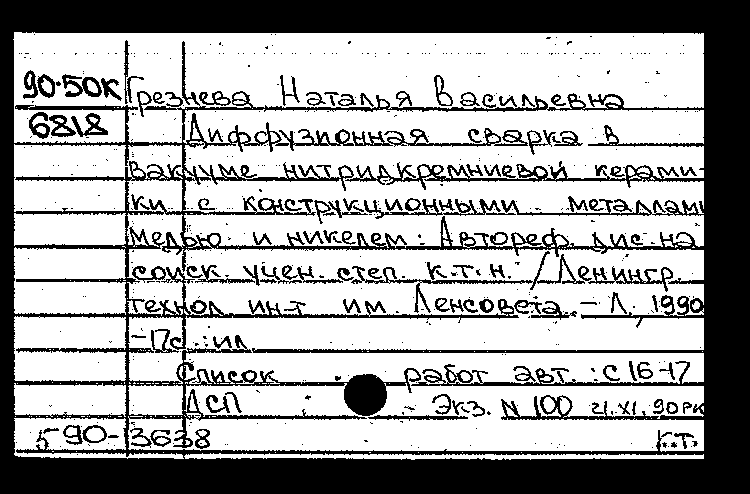 90-50К Грезнева Наталья Васильевна
6818 Диффузионная сварка в
вакууме нитридкремниевой керами-
ки с конструкционными металлами
медью и никелем : Автореф. дис. на
соиск. учен. степ. к.т.н. / Ленингр.
технол. ин-т им. Ленсовета. - Л., 1990
- 17с. : ил.
Список работ авт. : с 16-17
ДСП - Экз. N 100 21.XI.90 РК
5 90-13638 к.т.